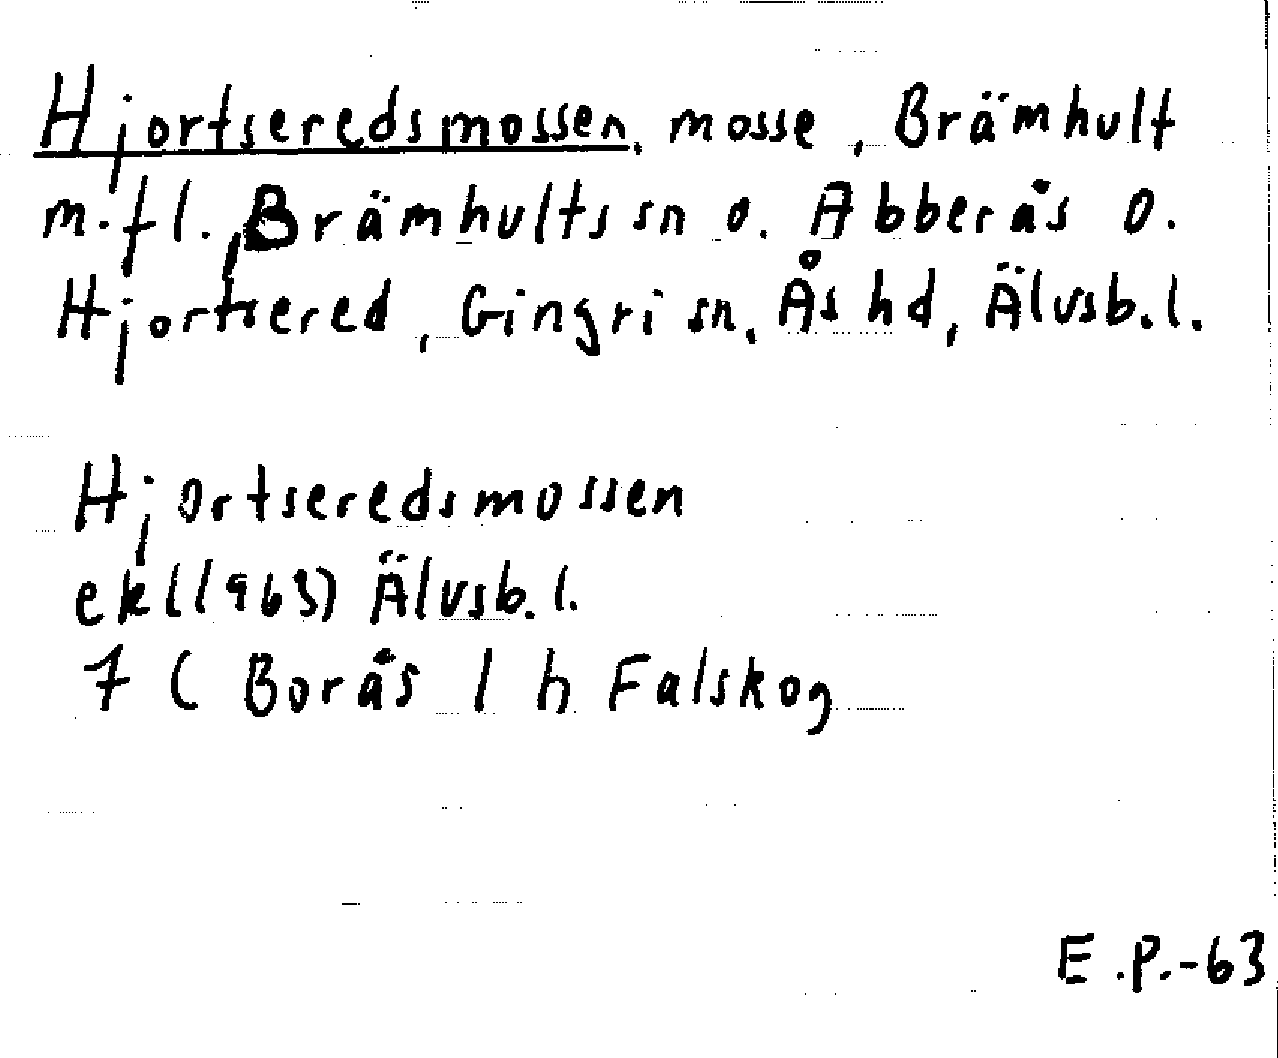 Hjortseredsmossen, mosse, Brämhult
m.fl., Brämhults sn o. Abberås o.
Hjortsered, Gingri sn, Ås hd, Älvsb.l.
Hjortseredsmossen
ekl(1963) Älvsb.l.
7 C Borås l h Falskog
E.P.-63